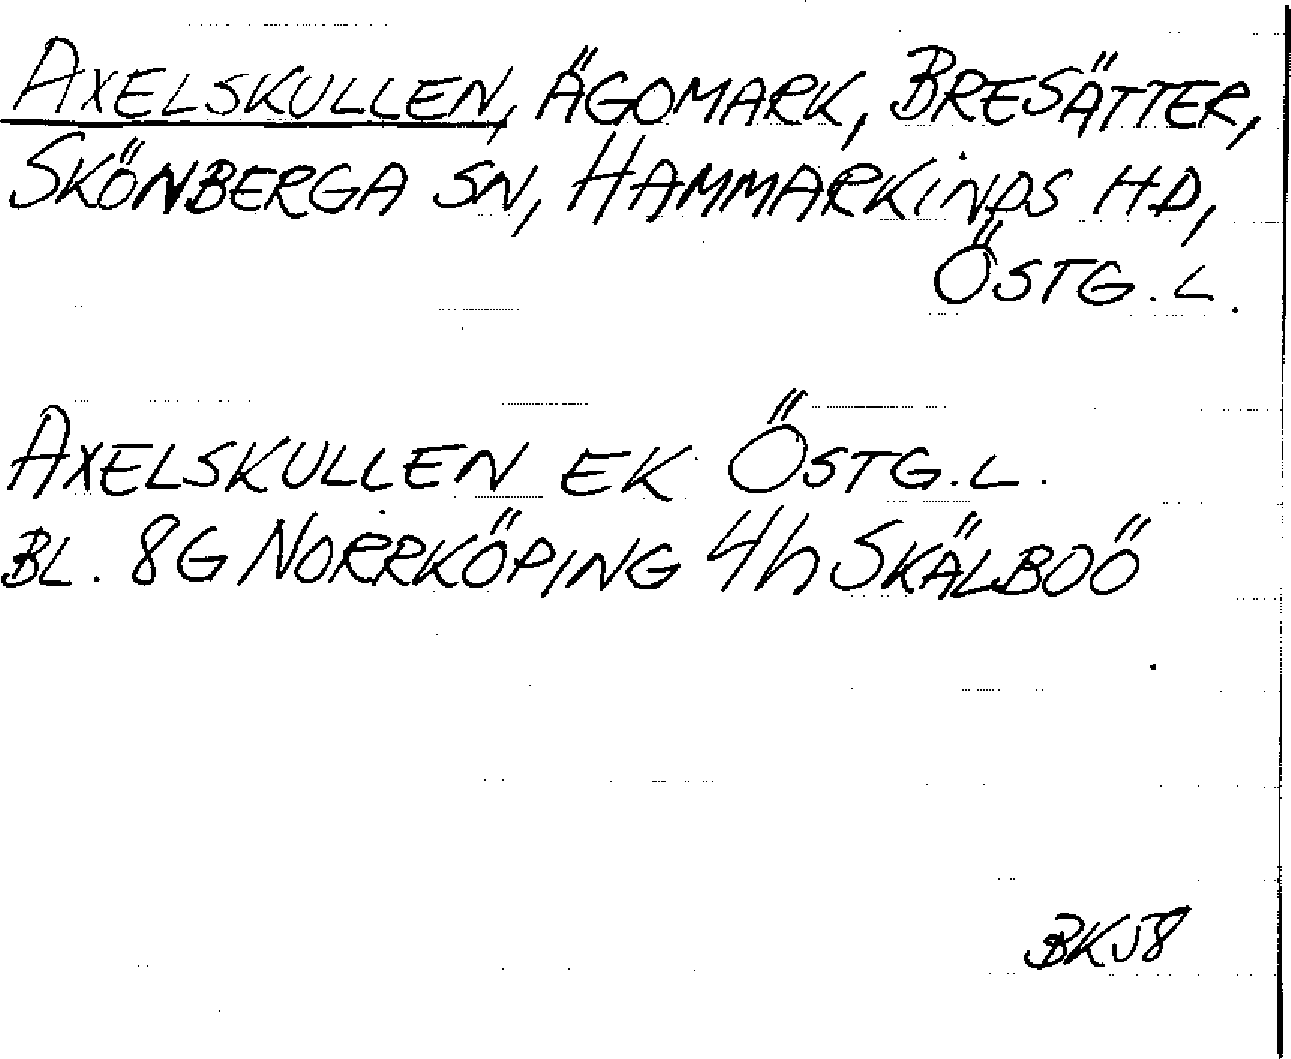 AXELSKULLEN, ÄGOMARK, BRESÄTTER,
SKÖNBERGA SN, HAMMARKINDS HD,
ÖSTG.L.
AXELSKULLEN EK ÖSTG.L.
BL. 8G NORRKÖPING 4h SKÄLBOÖ